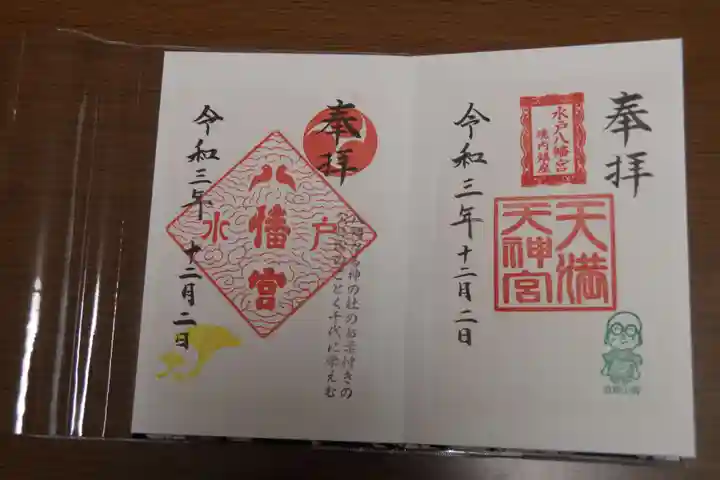 奉拝
水戸八幡宮
境内鎮座
天満
天神宮
令和三年 十二月二日
奉拝
水戸
八幡宮
神の社のお葉付きの
ごとく千代に栄えむ
令和三年 十二月二日